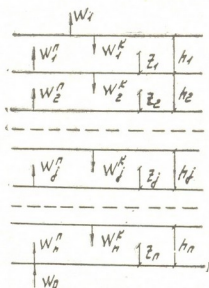 W₁
W₁ⁿ W₁ᵏ z₁ h₁
W₂ⁿ W₂ᵏ z₂ h₂
Wⱼⁿ Wⱼᵏ zⱼ hⱼ
Wₙⁿ Wₙᵏ zₙ hₙ
W₀